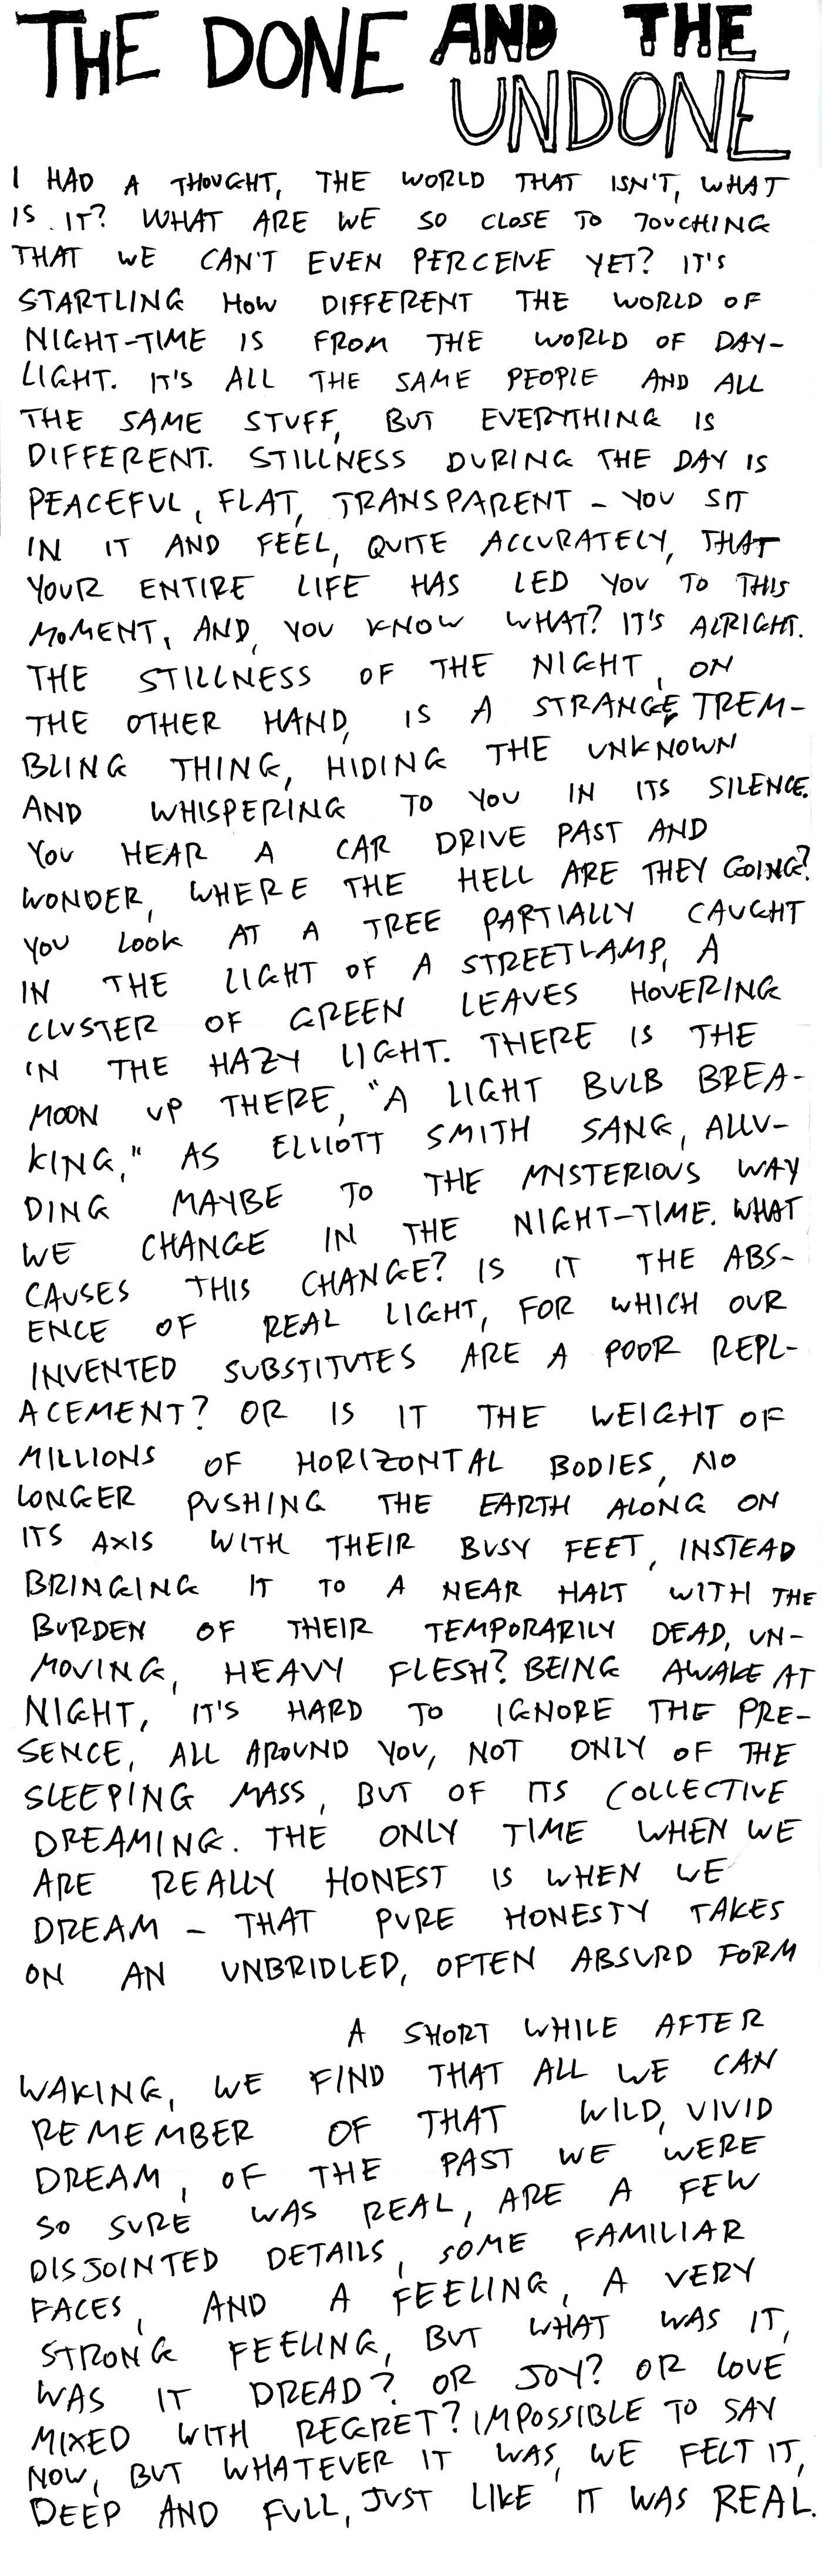 THE DONE AND THE
UNDONE
I HAD A THOUGHT, THE WORLD THAT ISN'T, WHAT
IS IT? WHAT ARE WE SO CLOSE TO TOUCHING
THAT WE CAN'T EVEN PERCEIVE YET? IT'S
STARTLING HOW DIFFERENT THE WORLD OF
NIGHT-TIME IS FROM THE WORLD OF DAY-
LIGHT. IT'S ALL THE SAME PEOPLE AND ALL
THE SAME STUFF, BUT EVERYTHING IS
DIFFERENT. STILLNESS DURING THE DAY IS
PEACEFUL, FLAT, TRANSPARENT - YOU SIT
IN IT AND FEEL, QUITE ACCURATELY, THAT
YOUR ENTIRE LIFE HAS LED YOU TO THIS
MOMENT, AND, YOU KNOW WHAT? IT'S ALRIGHT.
THE STILLNESS OF THE NIGHT, ON
THE OTHER HAND, IS A STRANGE, TREM-
BLING THING, HIDING THE UNKNOWN
AND WHISPERING TO YOU IN ITS SILENCE.
YOU HEAR A CAR DRIVE PAST AND
WONDER, WHERE THE HELL ARE THEY GOING?
YOU LOOK AT A TREE PARTIALLY CAUGHT
IN THE LIGHT OF A STREETLAMP, A
CLUSTER OF GREEN LEAVES HOVERING
IN THE HAZY LIGHT. THERE IS THE
MOON UP THERE, "A LIGHT BULB BREA-
KING," AS ELLIOTT SMITH SANG, ALLU-
DING MAYBE TO THE MYSTERIOUS WAY
WE CHANGE IN THE NIGHT-TIME. WHAT
CAUSES THIS CHANGE? IS IT THE ABS-
ENCE OF REAL LIGHT, FOR WHICH OUR
INVENTED SUBSTITUTES ARE A POOR REPL-
ACEMENT? OR IS IT THE WEIGHT OF
MILLIONS OF HORIZONTAL BODIES, NO
LONGER PUSHING THE EARTH ALONG ON
ITS AXIS WITH THEIR BUSY FEET, INSTEAD
BRINGING IT TO A NEAR HALT WITH THE
BURDEN OF THEIR TEMPORARILY DEAD, UN-
MOVING, HEAVY FLESH? BEING AWAKE AT
NIGHT, IT'S HARD TO IGNORE THE PRE-
SENCE, ALL AROUND YOU, NOT ONLY OF THE
SLEEPING MASS, BUT OF ITS COLLECTIVE
DREAMING. THE ONLY TIME WHEN WE
ARE REALLY HONEST IS WHEN WE
DREAM - THAT PURE HONESTY TAKES
ON AN UNBRIDLED, OFTEN ABSURD FORM
A SHORT WHILE AFTER
WAKING, WE FIND THAT ALL WE CAN
REMEMBER OF THAT WILD, VIVID
DREAM, OF THE PAST WE WERE
SO SURE WAS REAL, ARE A FEW
DISJOINTED DETAILS, SOME FAMILIAR
FACES, AND A FEELING, A VERY
STRONG FEELING, BUT WHAT WAS IT,
WAS IT DREAD? OR JOY? OR LOVE
MIXED WITH REGRET? IMPOSSIBLE TO SAY
NOW, BUT WHATEVER IT WAS, WE FELT IT,
DEEP AND FULL, JUST LIKE IT WAS REAL.